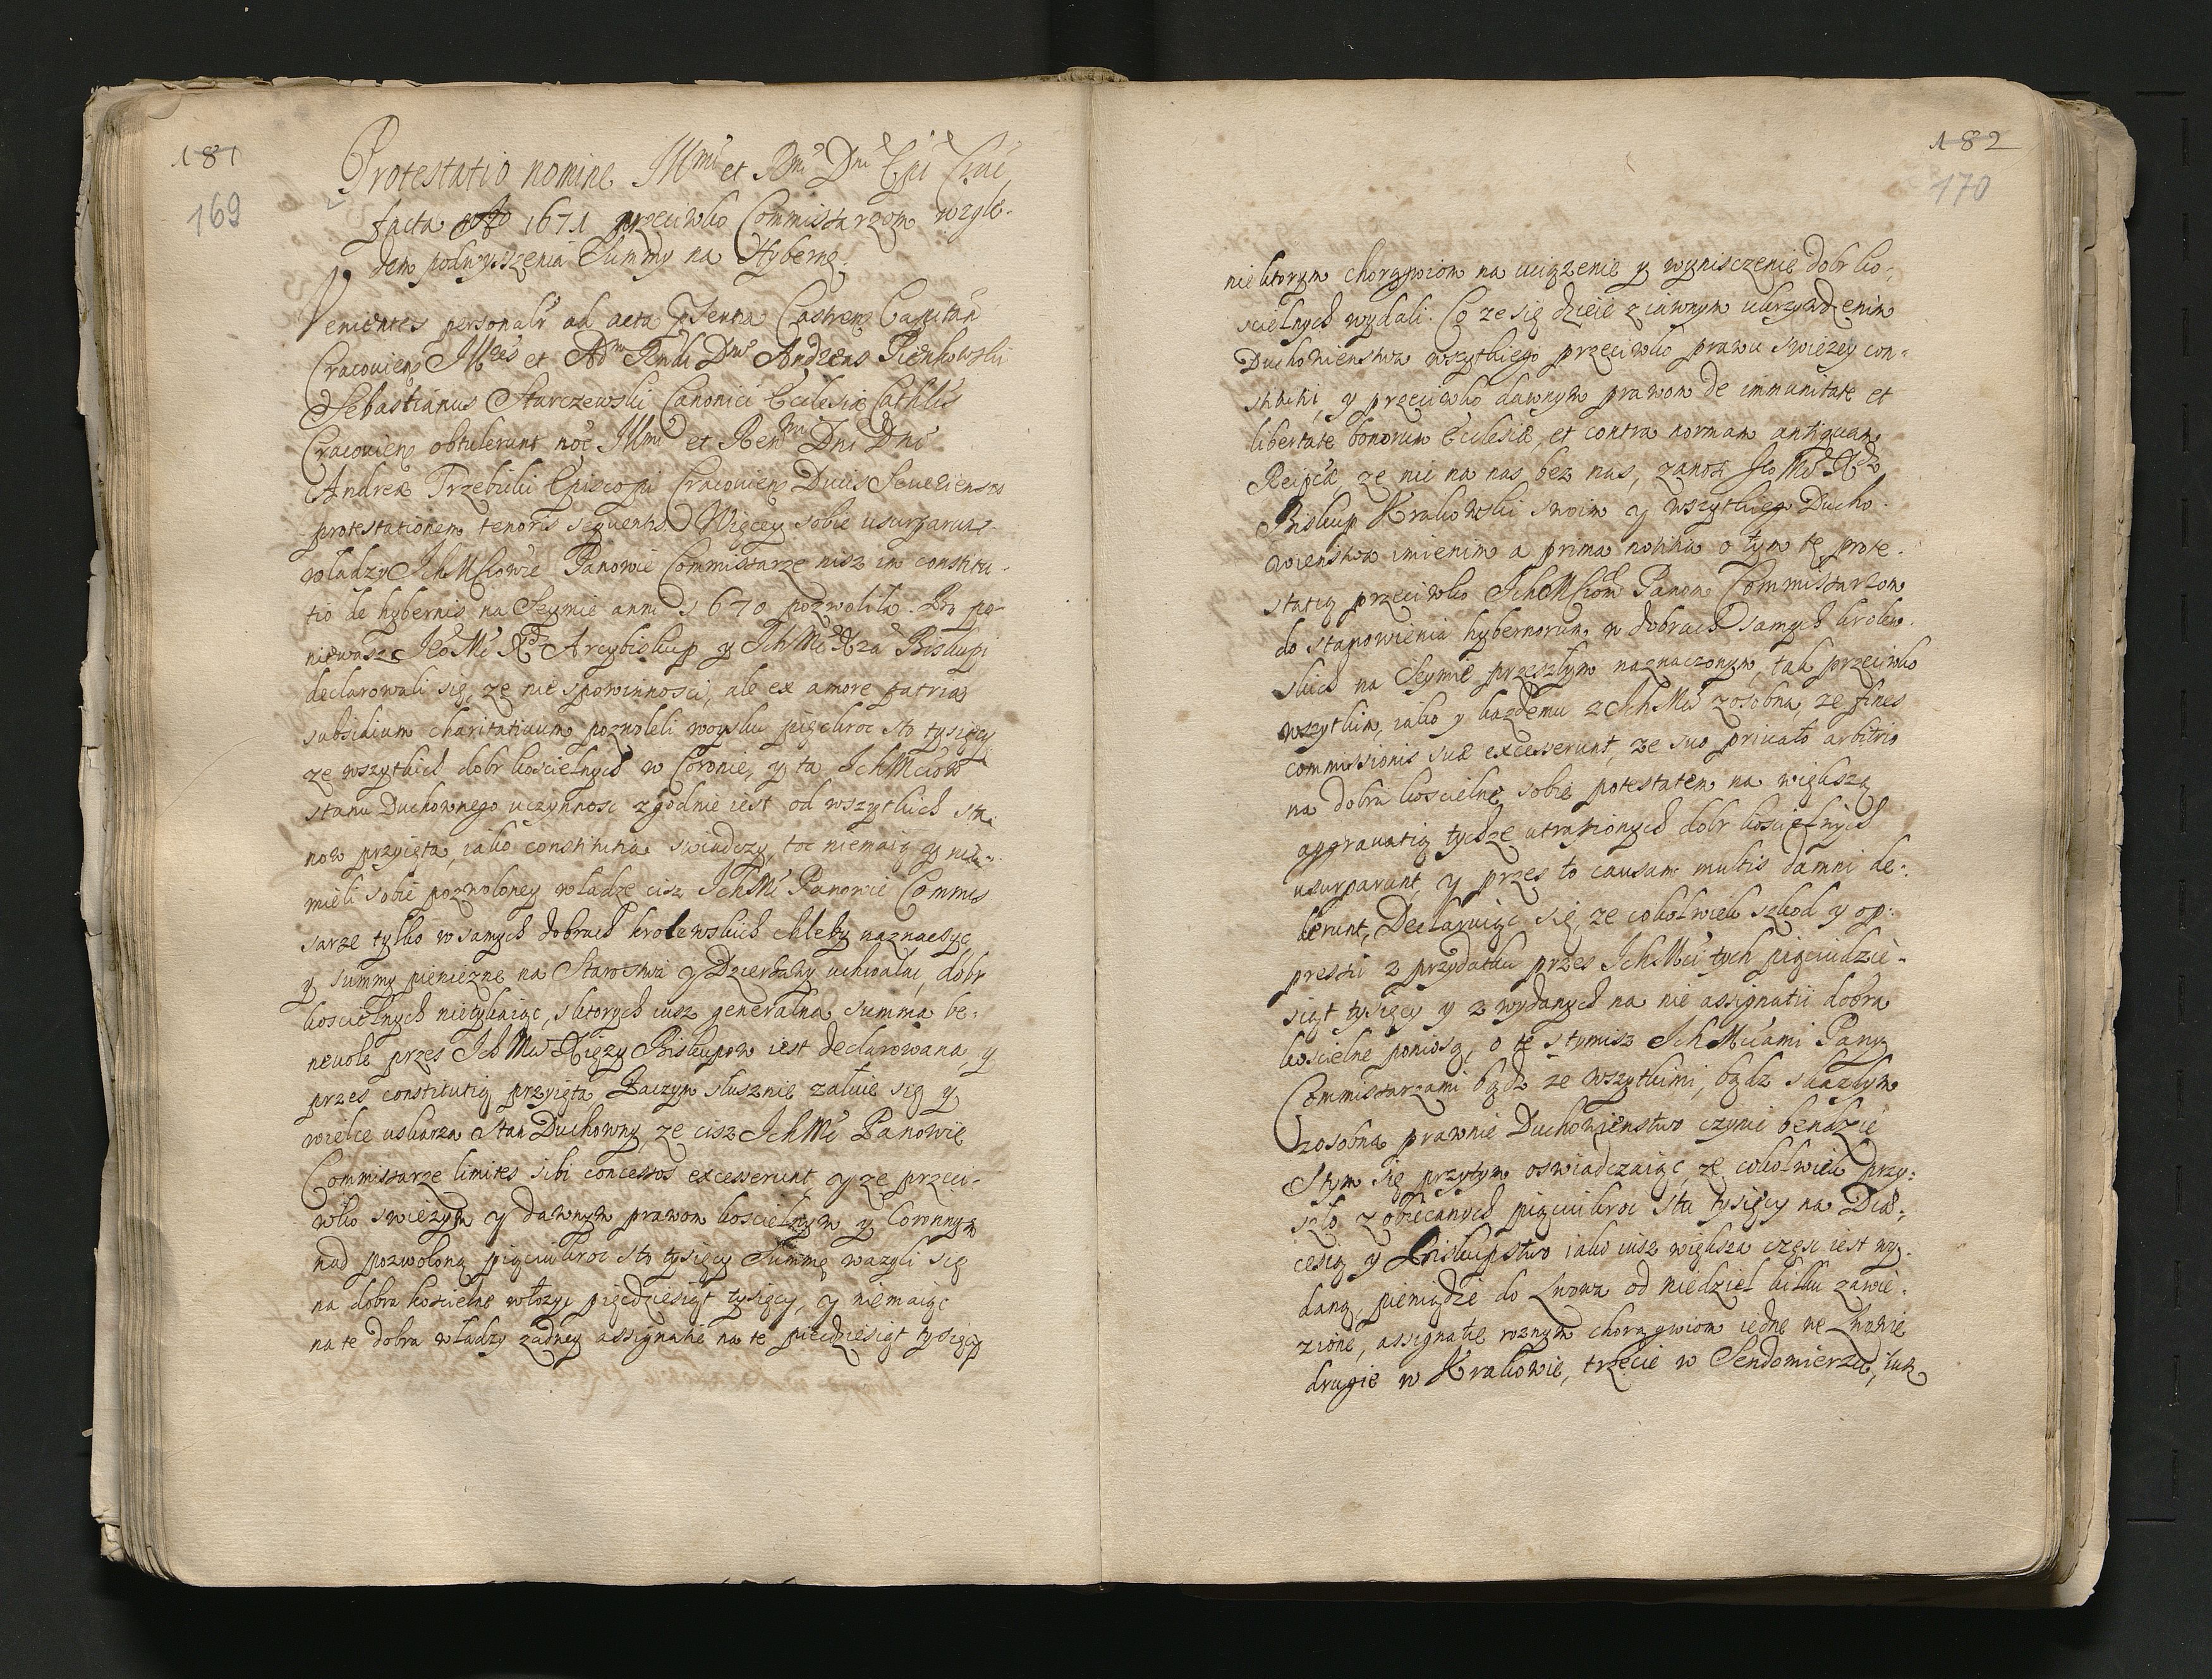 181
169
Protestatio nomine Illmi et Rmi Dni Epi Crac
facta Ao 1671 przeciwko Commissarzom wzglę-
dem podwyszenia Summy na Hybernę.
Venientes personalr ad acta pᵈsentia Castren Capitan
Cracovien Illres et Adm Rndi Dni Andreas Pienkowski
Sebastianus Starczewski Canonici Ecclesiæ Cathlis
Cracovien obtulerunt noe Illmi et Rendmi Dni Dni
Andreæ Trzebicki Episcopi Cracovien Ducis Severiensis
protestationem tenoris sequentis. Więcey sobie usurparunt
władzy Ich Mciowie Panowie Commissarze nisz im constitu-
tio de hybernis na Seymie anni 1670 pozwoliła. Bo po-
niewasz Jeo Mć Xdz Arcybiskup y Ich Mć Xża Biskupi
declarowali się, ze nie spowinnosci, ale ex amore patriæ
subsidium charitativum pozwoleli woysku pięckroc sto tysięcy
ze wszytkich dobr koscielnych w Coronie, y ta Ich Mciow
stanu Duchownego uczynnosc zgodnie iest od wszytkich sta
now przyięta, iako constitutia swiadczy, toc niemaią y nie
mieli sobie pozwoloney władze cisz Ich Mć Panowie Commis
sarze tylko w samych dobrach krolewskich chleby naznaczyc
y summy pieniezne na Starostwa y Dzierzawy uchwalac, dobr
koscielnych nietykaiąc, sktorych iusz generalna summa be-
nevole przes Ich Mć Xięzy Biskupow iest declarowana y
przes constitutią przyięta, Zaczym słusznie załuie się y
wielce uskarza Stan Duchowny ze cisz Ich Mć Panowie
Commissarze limites sibi concessos excesserunt y ze przeci-
wko swiezym y dawnym prawom koscielnym y Coronnym
nad pozwoloną pięciukroc sto tysięcy Summę wazyli się
na dobra koscielne włozyc pięcdziesiąt tysięcy, y niemaiąc
na te dobra władzy zadney assignatie na te piecdziesiąt tysięcy
182
170
niektorym chorągwiom na uciązenie y wyniszczenie dobr ko-
scielnych wydali. Co ze się dzieie z iawnym ukrzywdzeniem
Duchowienstwa wszytkiego przeciwko prawu swiezey con-
stitutii, y przeciwko dawnym prawom de immunitate et
libertate bonorum Ecclesiæ, et contra normam antiquam
Reipcæ ze nic na nas bez nas, zanosi Jeo Mć Xdz
Biskup Krakowski swoim y wszytkiego Ducho-
wienstwa imieniem a prima notitia o tym tę prote-
statią przeciwko Ich Mciom Panom Commissarzom
do stanowienia hybernorum w dobrach samych krolew-
skich na Seymie przeszłym naznaczonym, tak przeciwko
wszytkim, iako y kazdemu z Ich Mci zosobna, ze fines
commissionis suæ excesserunt, ze suo privato arbitrio
na dobra koscielne sobie potestatem na większą
aggravatią tychze utrapionych dobr koscielnych
usurparunt, y przes to causam multis damni de-
derunt, Declaruiąc się, ze cokolwiek szkod y op-
pressii z przydatku przes Ich Mci tych pięciudzie-
siąt tysięcy y z wydanych na nie assignatii dobra
koscielne poniosą, o tę stymisz Ich Mciami Pany
Commissarzami bądz ze wszytkimi, bądz skazdym
zosobna prawnie Duchowienstwo czynic bendzie
Stym się przytym oswiadczaiąc, ze cokolwiek przy-
szło zobiecanych pięciukroc stu tysięcy na Diæ-
cesią y Biskupstwo iako iusz większa częsc iest wy-
daną, pieniądze do Lwowa od niedziel kilku zawie-
zione, assignatie roznym chorągwiom iedne we Lwowie
drugie w Krakowie, trzecie w Sendomierzu, iuz